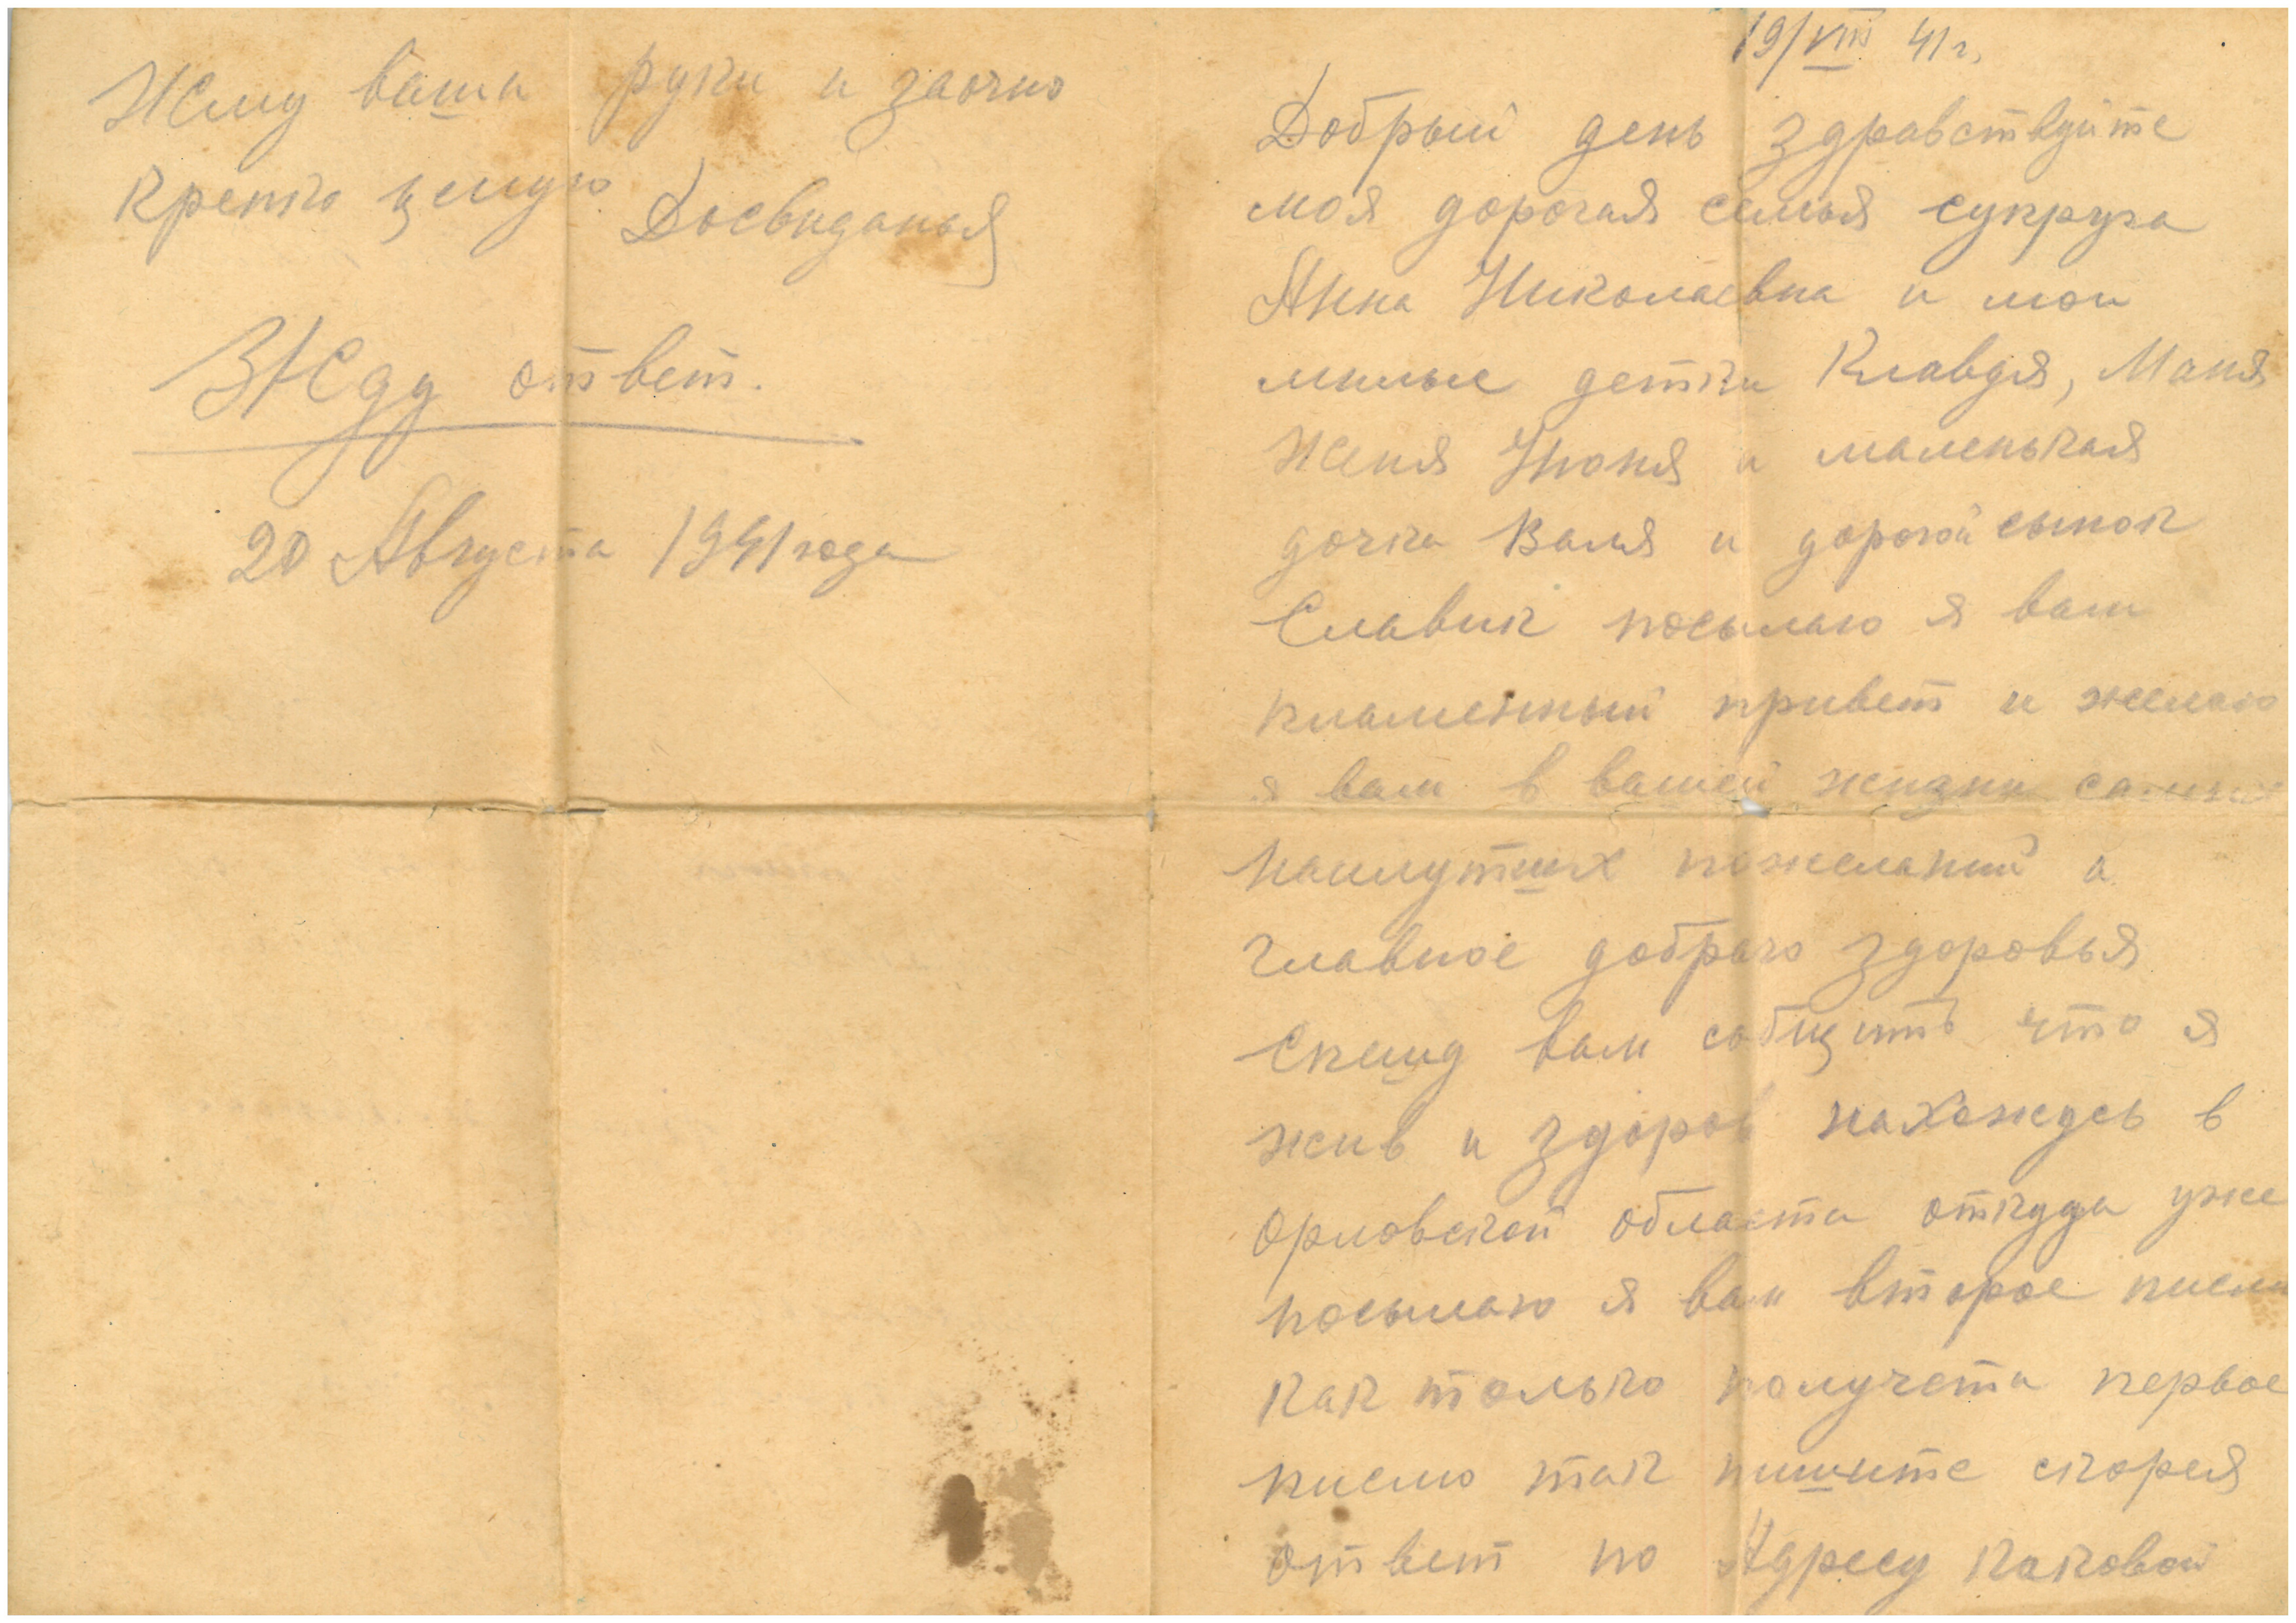 19/VIII 41 г.
Добрый день здравствуйте
моя дорогая семья супруга
Анна Николаевна и мои
милые детки Клавдя, Маня
Женя Тюня и маленькая
дочка Валя и дорогой сынок
Славик посылаю я вам
пламенный привет и желаю
я вам в вашей жизни самых
наилутших пожеланий а
главное доброго здоровья
спешу вам собщить что я
жив и здоров нахожусь в
Орловской области откуда уже
посылаю я вам второе писмо
как только получета первое
писмо так пишите скорея
ответ по Адресу каковой
Жму ваши руки и заочно
крепко целую Досвиданья
Жду ответ.
20 Августа 1941 года